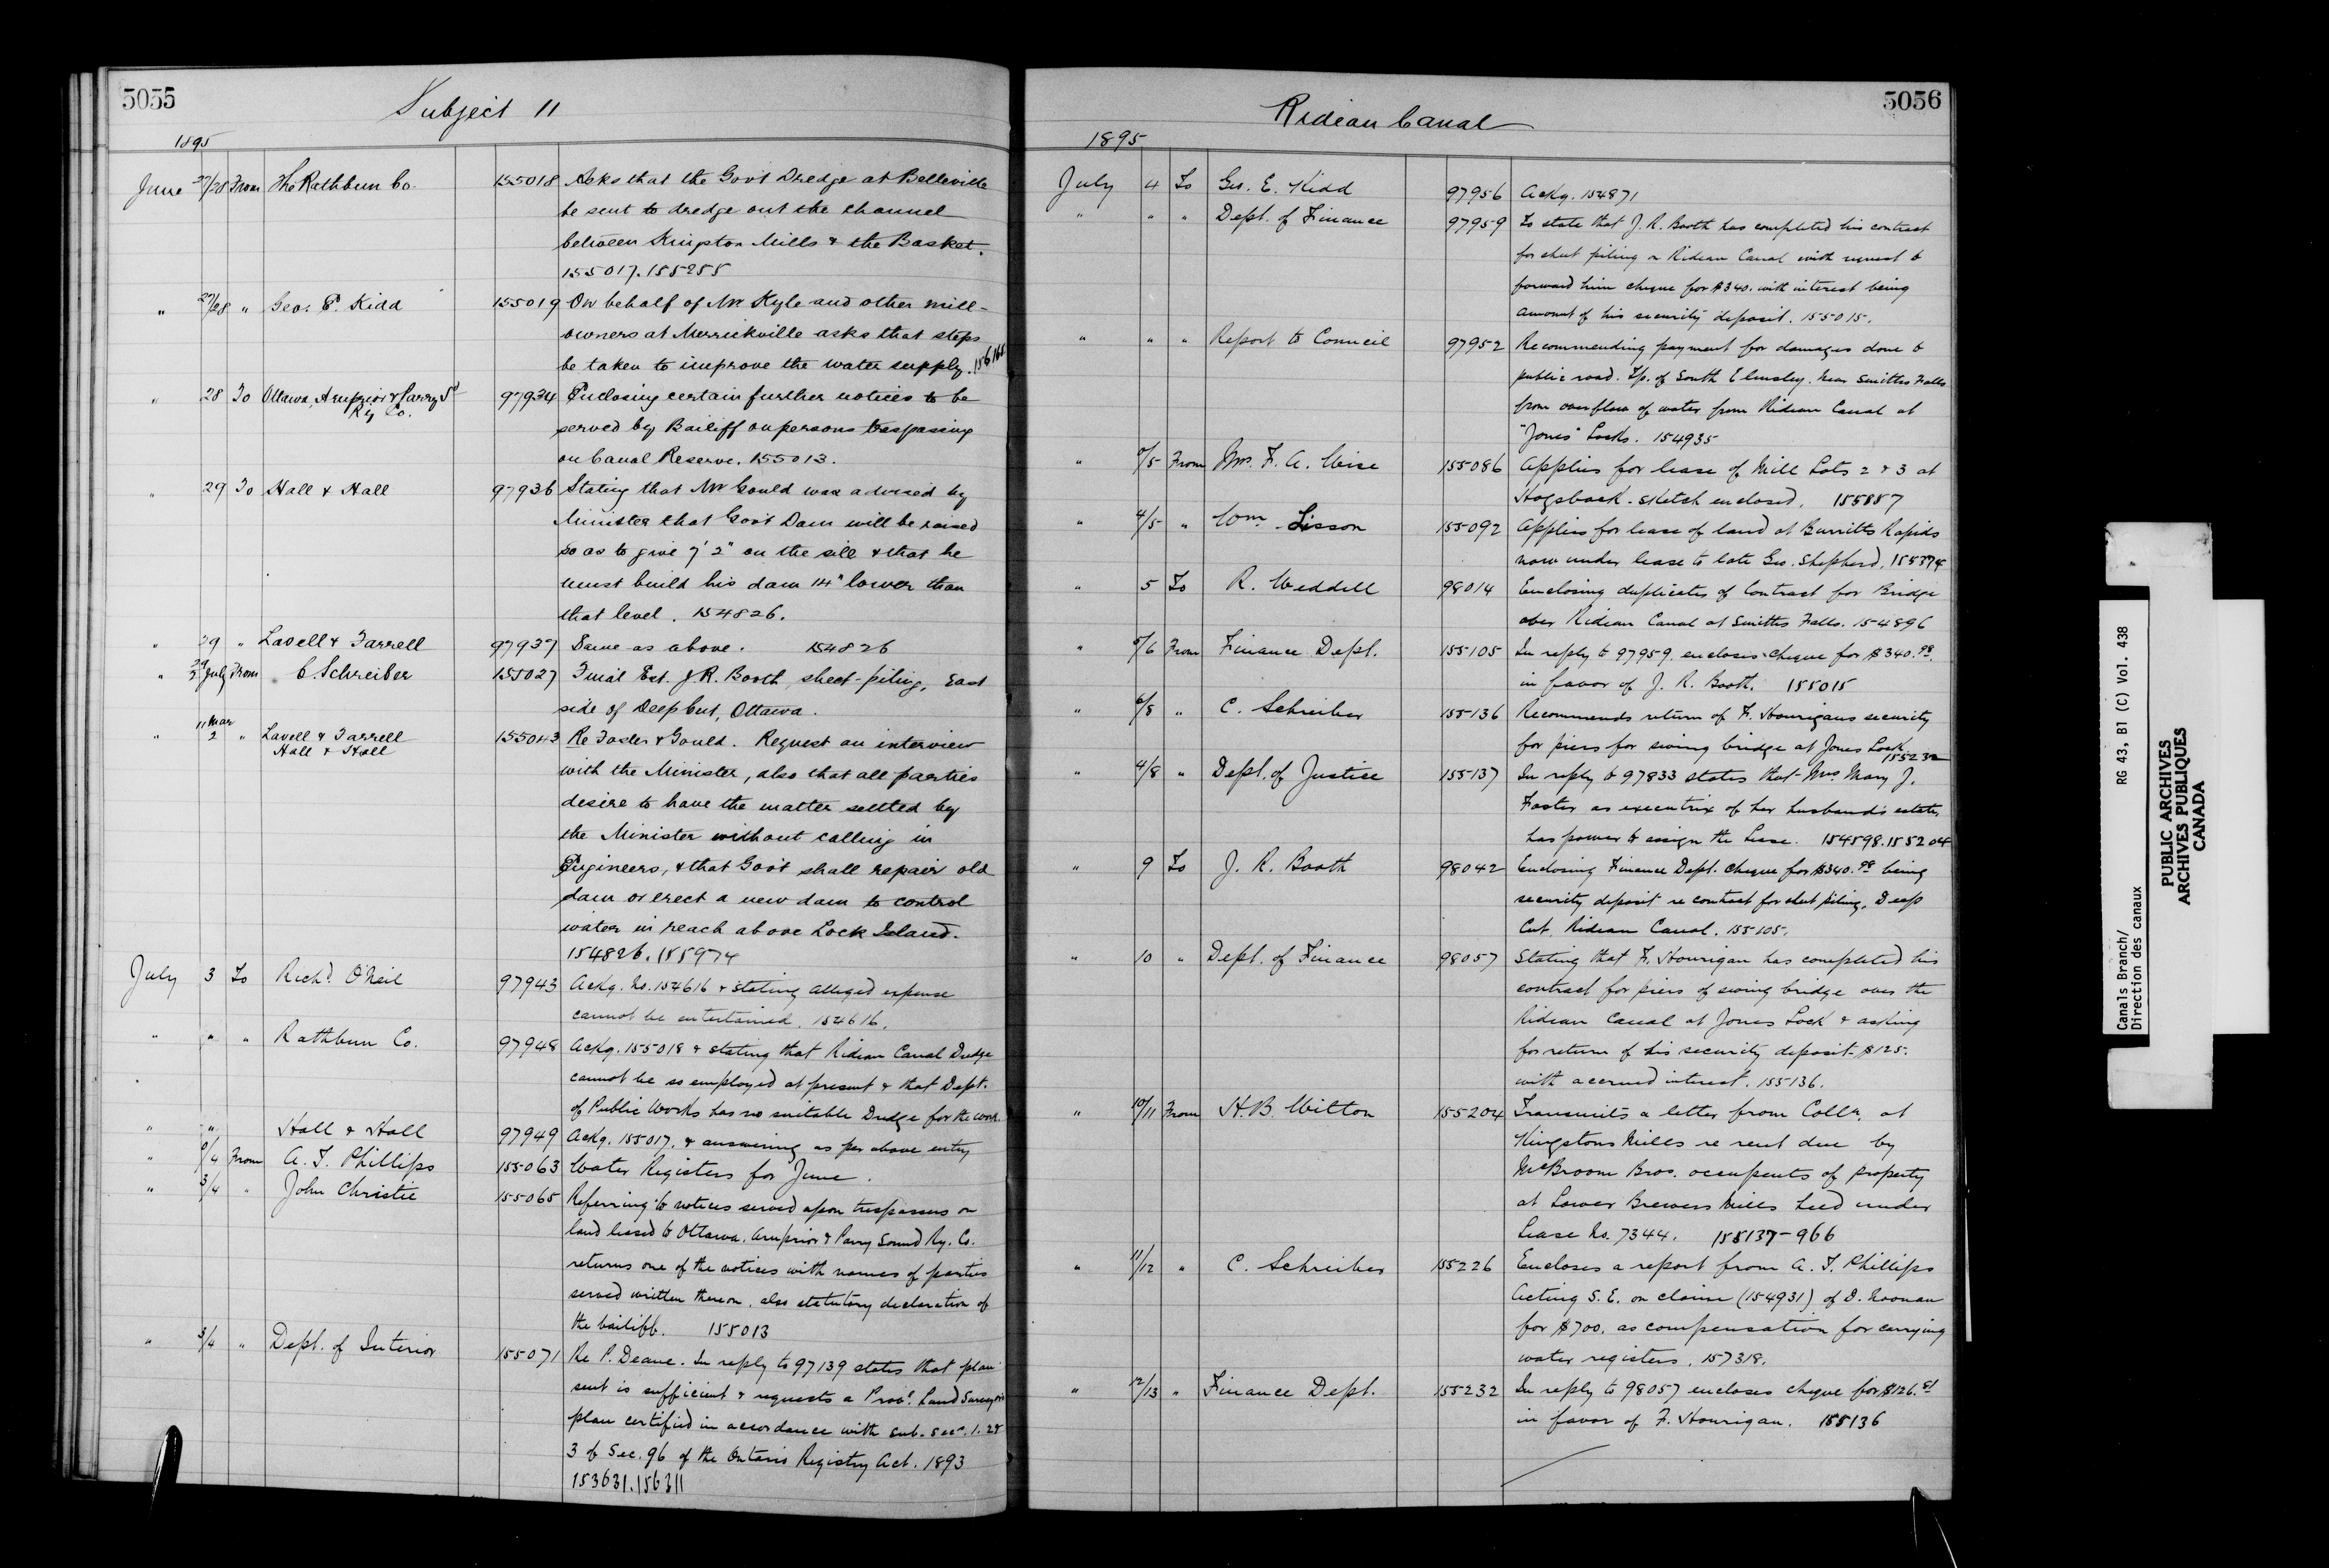 5055
Subject 11
1895
June 27/28 From The Rathbun Co. 155018 Asks that the Gov't Dredge at Belleville
be sent to dredge out the channel
between Kingston Mills & the Basket.
155017.155255
" 27/28 " Geo. E. Kidd 155019 On behalf of Mr Kyle and other mill-
owners at Merrickville asks that steps
be taken to improve the water supply. 156166
" 28 To Ottawa, Arnprior & Parry Sd
Ry Co. 97934 Enclosing certain further notices to be
served by Bailiff on persons trespassing
on Canal Reserve. 155013.
" 29 To Hall & Hall 97936 Stating that Mr Gould was advised by
Minister that Gov't Dam will be raised
so as to give 7' 2" on the sill & that he
must build his dam 14" lower than
that level. 154826.
" 29 " Lavell & Farrell 97937 Same as above. 154826
" 29/3 July From C Schreiber 155027 Final Est. J. R. Booth, sheet-piling, East
side of Deep Cut, Ottawa.
" 11 Mar/2 " Lavell & Farrell
Hall & Hall 155043 Re Foster & Gould. Request an interview
with the Minister, also that all parties
desire to have the matter settled by
the Minister without calling in
Engineers, & that Gov't shall repair old
dam or erect a new dam to control
water in reach above Lock Island.
154826.155974
July 3 To Richd. O'Neil 97943 Ackg. No. 154616 & stating alleged expense
cannot be entertained. 154616.
" " " Rathbun Co. 97948 Ackg. 155018 & stating that Rideau Canal Dredge
cannot be so employed at present & that Dept.
of Public Works has no suitable Dredge for the work.
" " Hall & Hall 97949 Ackg. 155017, & answering as per above entry
" /4 From A. T. Phillips 155063 Water Registers for June.
" 3/4 " John Christie 155065 Referring to notices served upon trespassers on
land leased to Ottawa, Arnprior & Parry Sound Ry. Co.
returns one of the notices with names of parties
served written thereon, also statutory declaration of
the bailiff. 155013
" 3/4 " Dept. of Interior 155071 Re P. Deane. In reply to 97139 states that plan
sent is sufficient & requests a Provl. Land Surveyors
plan certified in accordance with sub. secn. 1. 2 &
3 of Sec. 96 of the Ontario Registry Act. 1893
153631.156311
5056
Rideau Canal
1895
July 4 To Geo. E. Kidd 97956 Ackg. 154871
" " " Dept. of Finance 97959 To state that J. R. Booth has completed his contract
for sheet piling on Rideau Canal with request to
forward him cheque for $340. with interest being
amount of his security deposit. 155015.
" " " Report to Council 97952 Recommending payment for damages done to
public road. Tp. of South Elmsley. near Smiths Falls
from overflow of water from Rideau Canal at
"Jones" Locks. 154935
" /5 From Mrs. F. A. Wise 155086 Applies for lease of Mill Lots 2 & 3 at
Hogsback. sketch enclosed. 155887
" 4/5 " Wm. Sisson 155092 Applies for lease of land at Burritts Rapids
now under lease to late Geo. Shepherd. 155374
" 5 To R. Weddell 98014 Enclosing duplicates of Contract for Bridge
over Rideau Canal at Smiths Falls. 154896
" 5/6 From Finance Dept. 155105 In reply to 97959. encloses cheque for $340.98
in favor of J. R. Booth. 155015
" 6/8 " C. Schreiber 155136 Recommends return of F. Hourigans security
for piers for swing bridge at Jones Lock
155232
" 4/8 " Dept. of Justice 155137 In reply to 97833 states that Mrs Mary J.
Foster as executrix of her husband's estate,
has power to assign the Lease. 154598.155204
" 9 To J. R. Booth 98042 Enclosing Finance Dept. cheque for $340.98 being
security deposit re contract for sheet piling, Deep
Cut, Rideau Canal. 155105.
" 10 " Dept. of Finance 98057 Stating that F. Hourigan has completed his
contract for piers of swing bridge over the
Rideau Canal at Jones Lock & asking
for return of his security deposit $125.
with accrued interest. 155136.
" 10/11 From H. B. Witton 155204 Transmits a letter from Collr. at
Kingstons Mills re rent due by
McBroom Bros. occupents of property
at Lower Brewers Mills held under
Lease No. 7344. 155137-966
" 11/12 " C. Schreiber 155226 Encloses a report from A. T. Phillips
Acting S. E. on claim (154931) of D. Noonan
for $700. as compensation for carrying
water registers. 157318.
" 12/13 " Finance Dept. 155232 In reply to 98057 encloses cheque for $126.81
in favor of F. Hourigan. 155136
Canals Branch/ RG 43, B1 (C) Vol. 438
Direction des canaux
PUBLIC ARCHIVES
ARCHIVES PUBLIQUES
CANADA